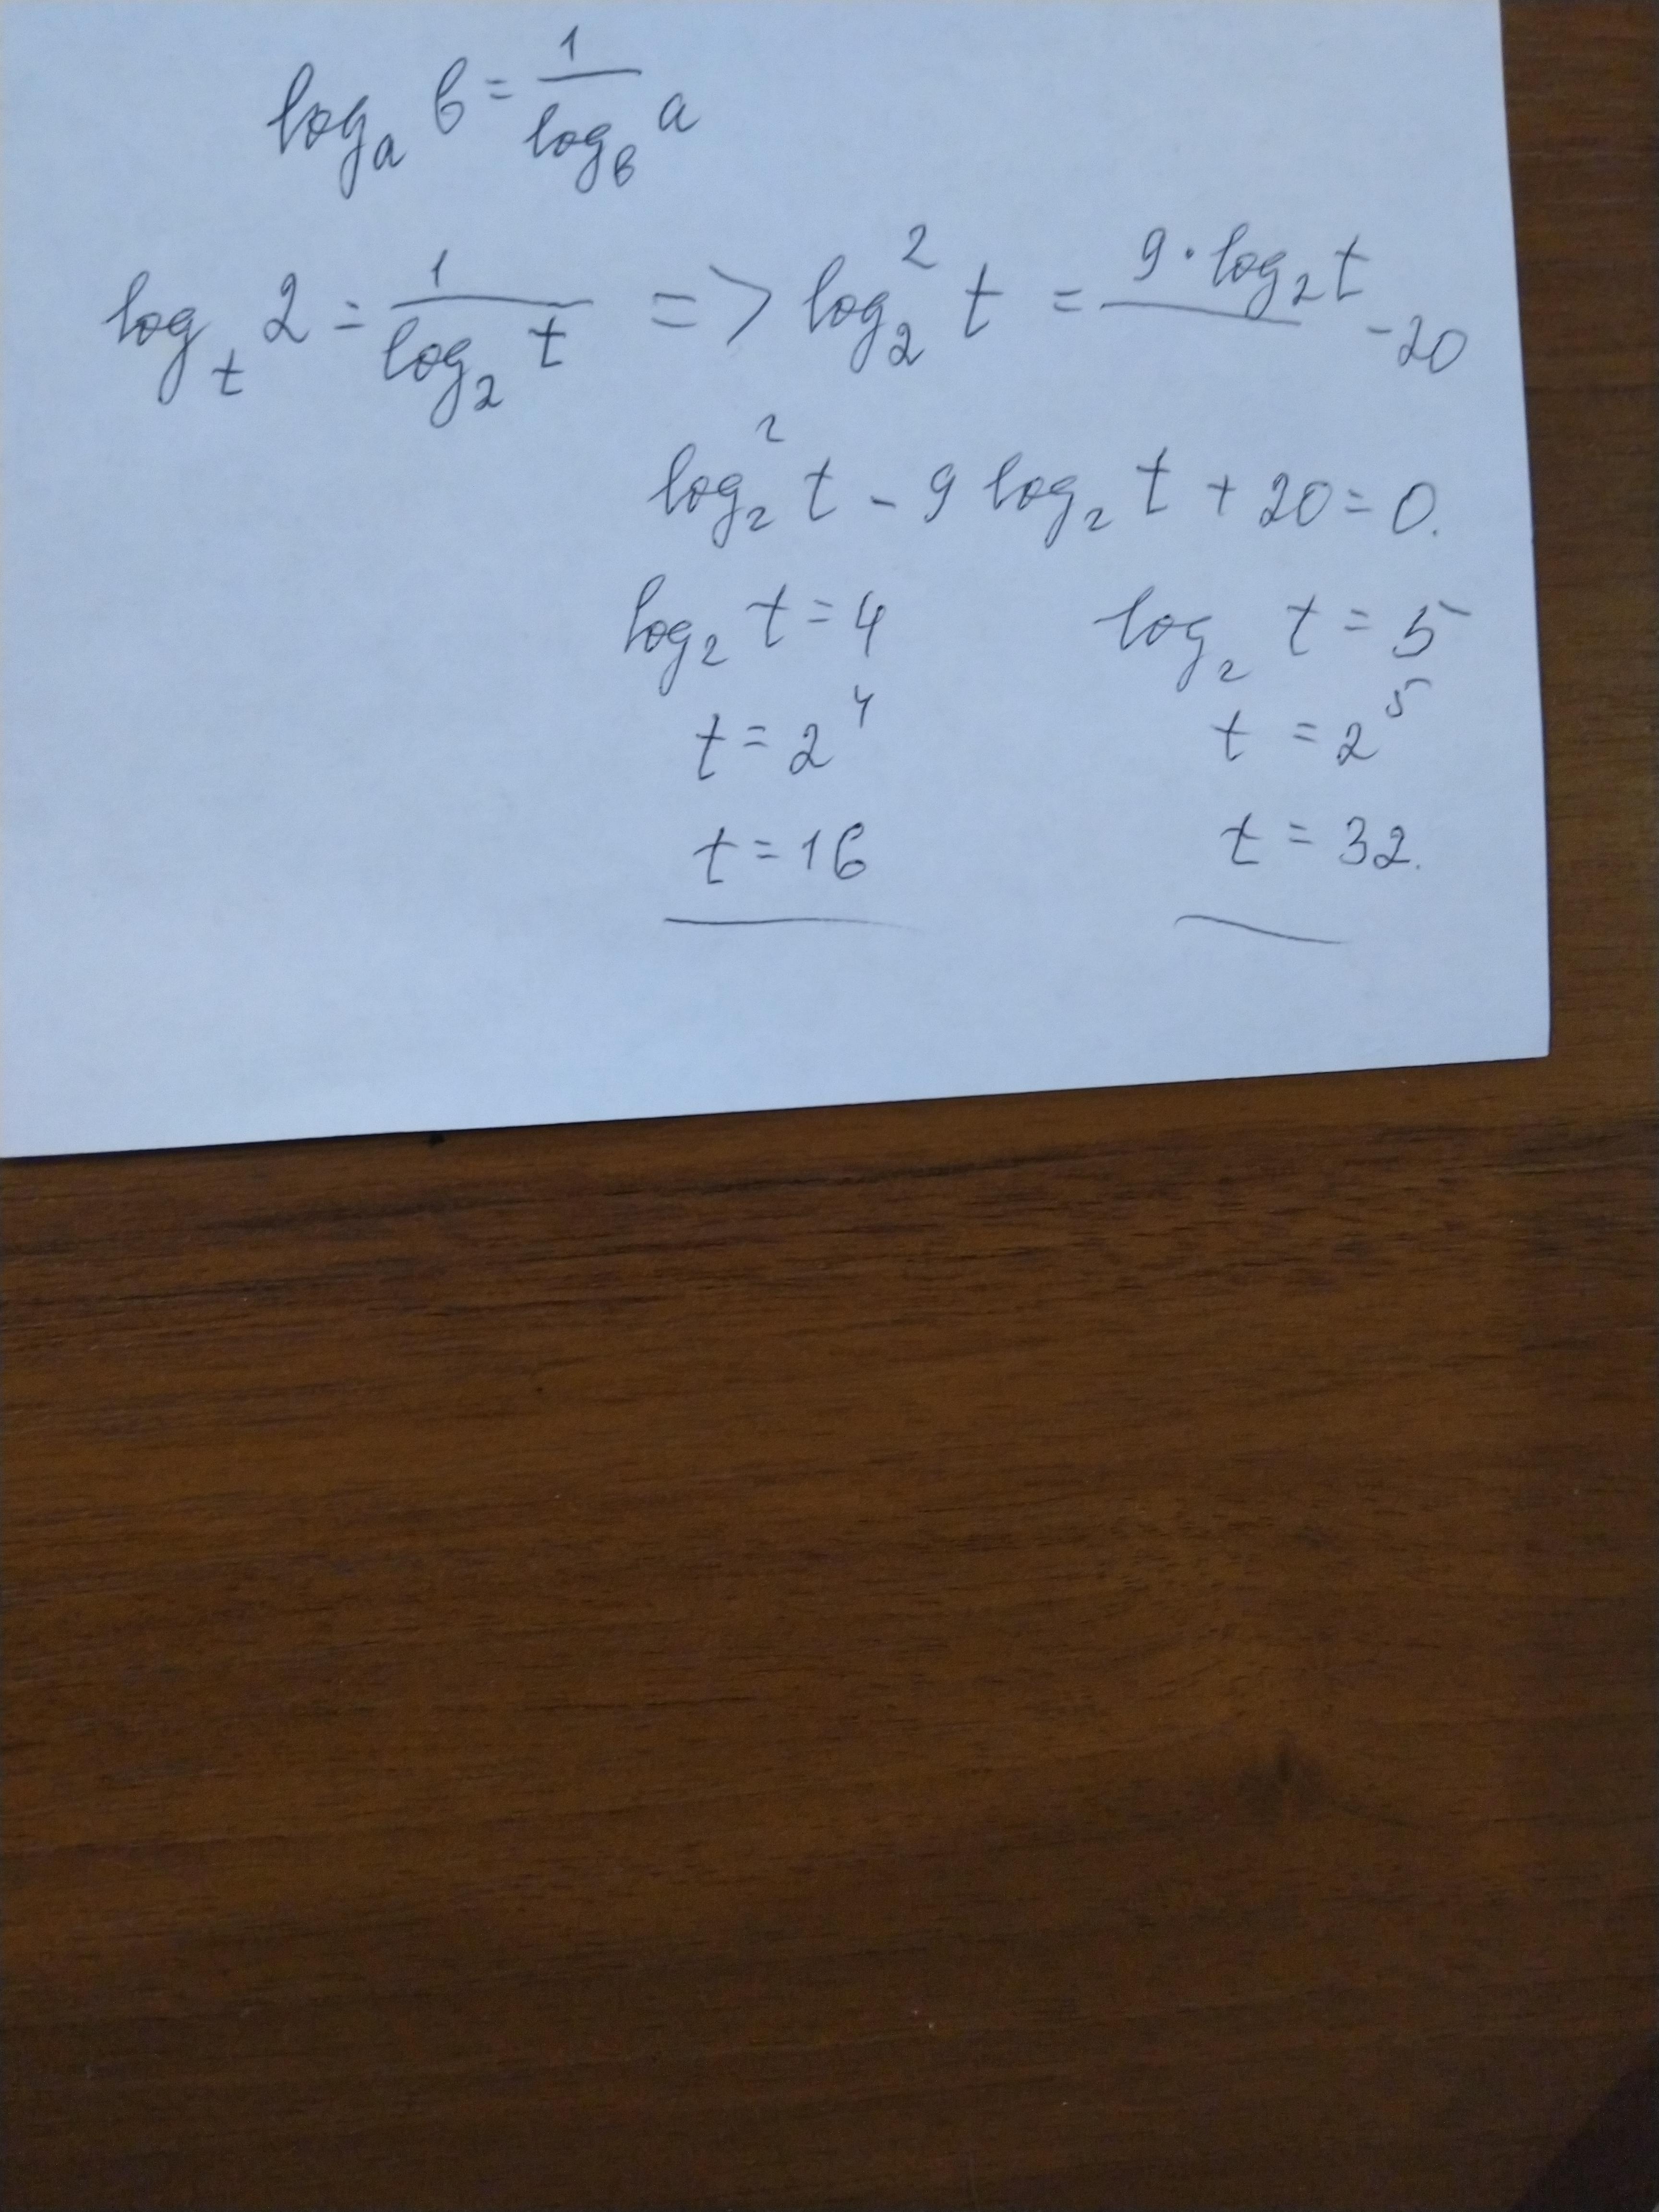 logₐ b = 1 / log_b a
log_t 2 = 1 / log₂ t => log₂² t = 9 · log₂ t - 20
log₂² t - 9 log₂ t + 20 = 0.
log₂ t = 4 log₂ t = 5
t = 2⁴ t = 2⁵
t = 16 t = 32.